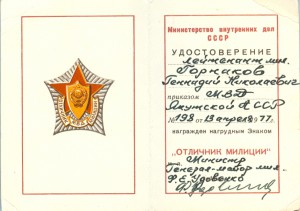 Министерство внутренних дел
СССР
УДОСТОВЕРЕНИЕ
лейтенант мил.
Горнаков
Геннадий Николаевич
приказом МВД
Якутской АССР
№ 198 от 13 апреля 1977 г.
награжден нагрудным Знаком
„ОТЛИЧНИК МИЛИЦИИ"
Министр
Генерал-майор мил.